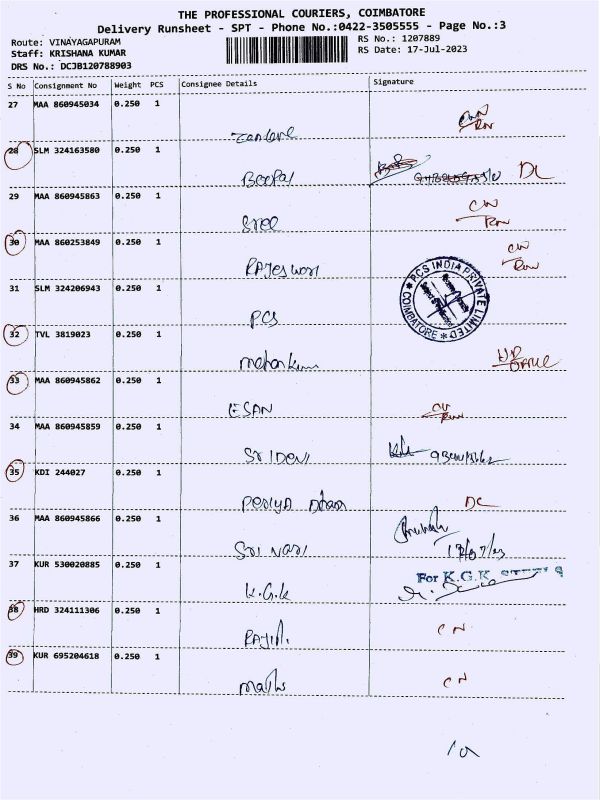 THE PROFESSIONAL COURIERS, COIMBATORE
Delivery Runsheet - SPT - Phone No.:0422-3505555 - Page No.:3
Route: VINAYAGAPURAM
RS No.: 1207889
Staff: KRISHANA KUMAR
RS Date: 17-Jul-2023
DRS No.: DCJB120788903
S No Consignment No Weight PCS Consignee Details Signature
27 MAA 860945034 0.250 1
28 SLM 324163580 0.250 1
Beepal
DC
29 MAA 860945863 0.250 1
CN
Sree
30 MAA 860253849 0.250 1
CN
Rajeswari
31 SLM 324206943 0.250 1
PCS INDIA PRIVATE LIMITED
COIMBATORE
PCS
32 TVL 3819023 0.250 1
33 MAA 860945862 0.250 1
ESAN
34 MAA 860945859 0.250 1
SRIDEVI
35 KDI 244027 0.250 1
Periya
DC
36 MAA 860945866 0.250 1
Sri Vari
17/07/23
37 KUR 530020885 0.250 1
For K.G.K
K.G.K
38 HRD 324111306 0.250 1
CN
39 KUR 695204618 0.250 1
CN